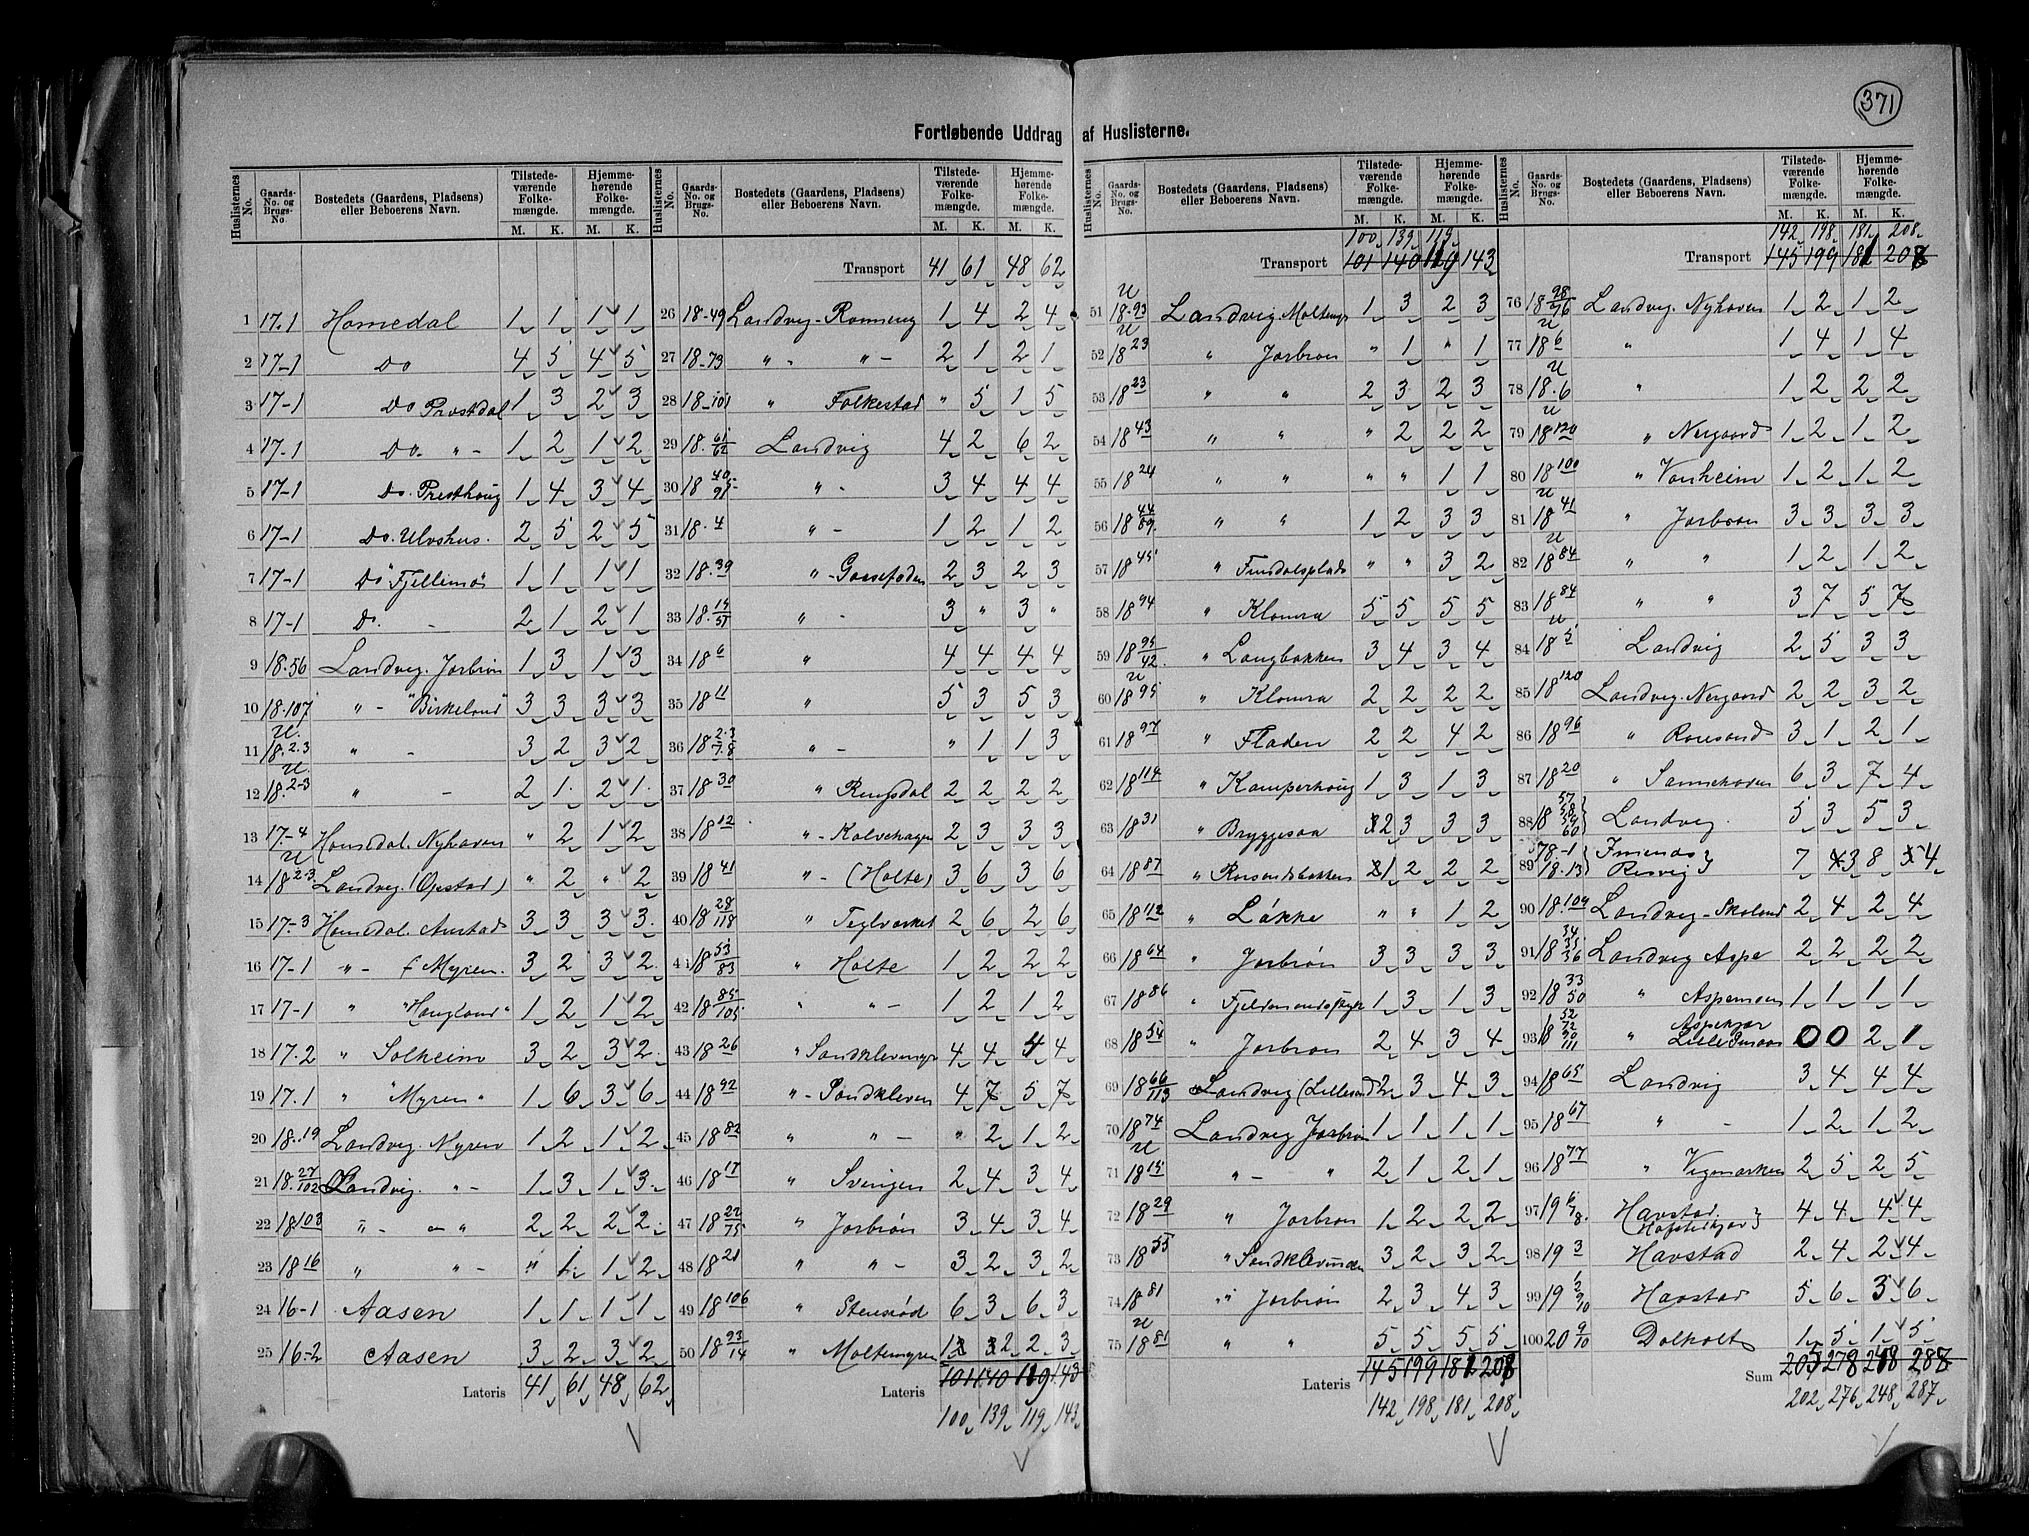 371
Fortløbende Uddrag af Huslisterne.
Huslisternes No. Gaards-No. og Brugs-No. Bostedets (Gaardens, Pladsens) eller Beboerens Navn. Tilstedeværende Folkemængde. M. K. Hjemmehørende Folkemængde. M. K.
1 17.1 Homedal 1 1 1 1
2 17-1 Do 4 5 4 5
3 17-1 Do Prestdal 1 3 2 3
4 17-1 Do. " - 1 2 1 2
5 17-1 Do. Presthoug 1 4 3 4
6 17-1 Do. Ulvshus. 2 5 2 5
7 17-1 Do Fjellemo 1 1 1 1
8 17-1 Do. - 2 1 2 1
9 18.56 Landvig. Jorbron 1 3 1 3
10 18.107 " - "Birkelund" 3 3 3 3
11 u. 18.2.3 " - 3 2 3 2
12 u 18.2-3 " - 2 1 2 1
13 17-4 Homdal. Nyhaven " 2 1 2
14 u 18 2.3. Landvig. (Opstad) " 2 " 2
15 17-3 Homdal. Austad 3 3 3 3
16 17-1 " - Myren. 3 2 3 2
17 17-1 " "Haugland" 1 2 1 2
18 17.2 " Solheim 3 2 3 2
19 17.1 " "Myren" 1 6 3 6
20 18.19 Landvig. Myren 1 2 1 2
21 18.27/102 Landvig. " - 1 3 1 3
22 18 103 " - " 2 2 2 2
23 18 16 " " - " 1 1 2
24 16-1 Aasen 1 1 1 1
25 16-2 Aasen 3 2 3 2
Lateris 41 61 48 62
Transport 41 61 48 62
26 18-49 Landvig-Romseng 1 4 2 4
27 18-73 " - " - 2 1 2 1
28 18-101 " Folkestad " 5 1 5
29 18.61/62 Landvig 4 2 6 2
30 18 40/95 " - 3 4 4 4
31 18.4 " - 1 2 1 2
32 18.39 " - 2 3 2 3
33 " - 3 " 3 "
34 18 6 " 4 4 4 4
35 18 11 " 5 3 5 3
36 18 2.3/7.8 " - " 1 1 3
37 18 30 " Ringsdal 2 2 2 2
38 18 12 " - Kalvehagen 2 3 3 3
39 18 41 " - (Holte) 3 6 3 6
40 18 28/118 " Teglverket 2 6 2 6
41 18 53/83 " Holte 1 2 2 2
42 18 85/105 " " - 1 2 1 2
43 18 26 " Sandklevmyr 4 4 4 4
44 18 92 " - Sandkleven 4 7 5 7
45 18 82 " " - " 2 1 2
46 18 17 " Svingen 2 4 3 4
47 18 22/75 " Jorbrön 3 4 3 4
48 18 21 " " - 3 2 3 2
49 18 106 " Stensrød 6 3 6 3
50 18 93/14 " Moltemyren 1 2 2 3
Lateris 101 140 119 143
100 139 119 143
100 139 119
Transport 101 140 119 143
51 u 18.93 Landvig Moltemyr 1 3 2 3
52 u 18 23 " Jorbron " 1 " 1
53 18 23 " " 2 3 2 3
54 18 43 " " " 2 2 2
55 18 24 " " " " 1 1
56 18 44/89 " " 1 2 3 3
57 18 45 " Finsdalsplads " " 3 2
58 18 94 " Klomra 5 5 5 5
59 18 95/42 " Langbakken 3 4 3 4
60 u 18 95 " Klomra 2 2 2 2
61 18 97 " Fladen 2 2 4 2
62 18 114 " Kamperhoug 1 3 1 3
63 18 31 " Bryggesaa 2 3 3 3
64 18 87 " Rorsandsbakken 1 2 2 2
65 18 112 " Løkke " " 1 2
66 18 64 " Jorbrön 3 3 3 3
67 18 86 " 1 3 1 3
68 18 54 " Jorbron 2 4 3 4
69 18 66/113 Landvig (Lillesand) 2 3 4 3
70 18 74 Landvig Jorbron 1 1 1 1
71 u 18 15 " - " 2 1 2 1
72 18 29 " Jorbron 1 2 2 2
73 18 55 " Sandklevmoen 3 2 3 2
74 18 81 " Jorbrön 2 3 4 3
75 u 18 81 " " 5 5 5 5
Lateris 145 199 181 208
142 198 181 208
142 198 181 208
Transport 145 199 181 208
76 18 98/76 Landvig. Nyhaven 1 2 1 2
77 u 18 6 " 1 4 1 4
78 u 18.6 " 1 2 2 2
79 u 18 120 " Nergaard 1 2 1 2
80 18 100 " Vonheim 1 2 1 2
81 u 18 41 " Jorbron 3 3 3 3
82 u 18 84 " " 1 2 1 2
83 18 84 " " 3 7 5 7
84 u 18 5 Landvig 2 5 3 3
85 18 120 Landvig. Nergaard 2 2 3 2
86 18 96 " Roresand 3 1 2 1
87 18 20 " Sannehaven 6 3 7 4
88 18 57 58 59 60 Landvig. 5 3 5 3
89 78-1 18.13 Imenæs Resvig 7 3 8 4
90 18.109 Landvig-Skolend 2 4 2 4
91 18 34 35 36 Landvig Aspe 2 2 2 2
92 18 33/50 " Aspemoen 1 1 1 1
93 " Aspekjær 0 0 2 1
94 18 65 Landvig 3 4 4 4
95 18 67 " - 1 2 1 2
96 18 77 " Vigmarken 2 5 2 5
97 19 6/78. Havstad. Hofstedkjær 4 4 4 4
98 19 3 Havstad 2 4 2 4
99 Havstad 5 6 3 6
100 20 9/10 Dolholt 1 5 1 5
Sum 205 278 248 288
202 276 248 287